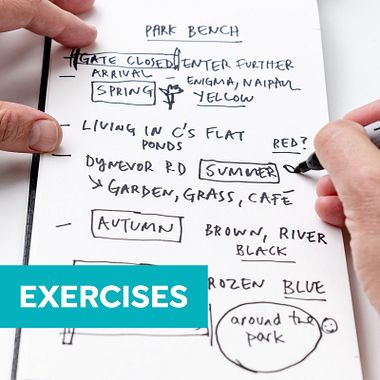 PARK BENCH
GATE CLOSED ENTER FURTHER
ARRIVAL – ENIGMA, NAIPAUL
SPRING YELLOW
– LIVING IN C'S FLAT
PONDS RED?
– DYNEVOR RD SUMMER
GARDEN, GRASS, CAFÉ
– AUTUMN BROWN, RIVER
BLACK
ROZEN BLUE
EXERCISES
around the
park